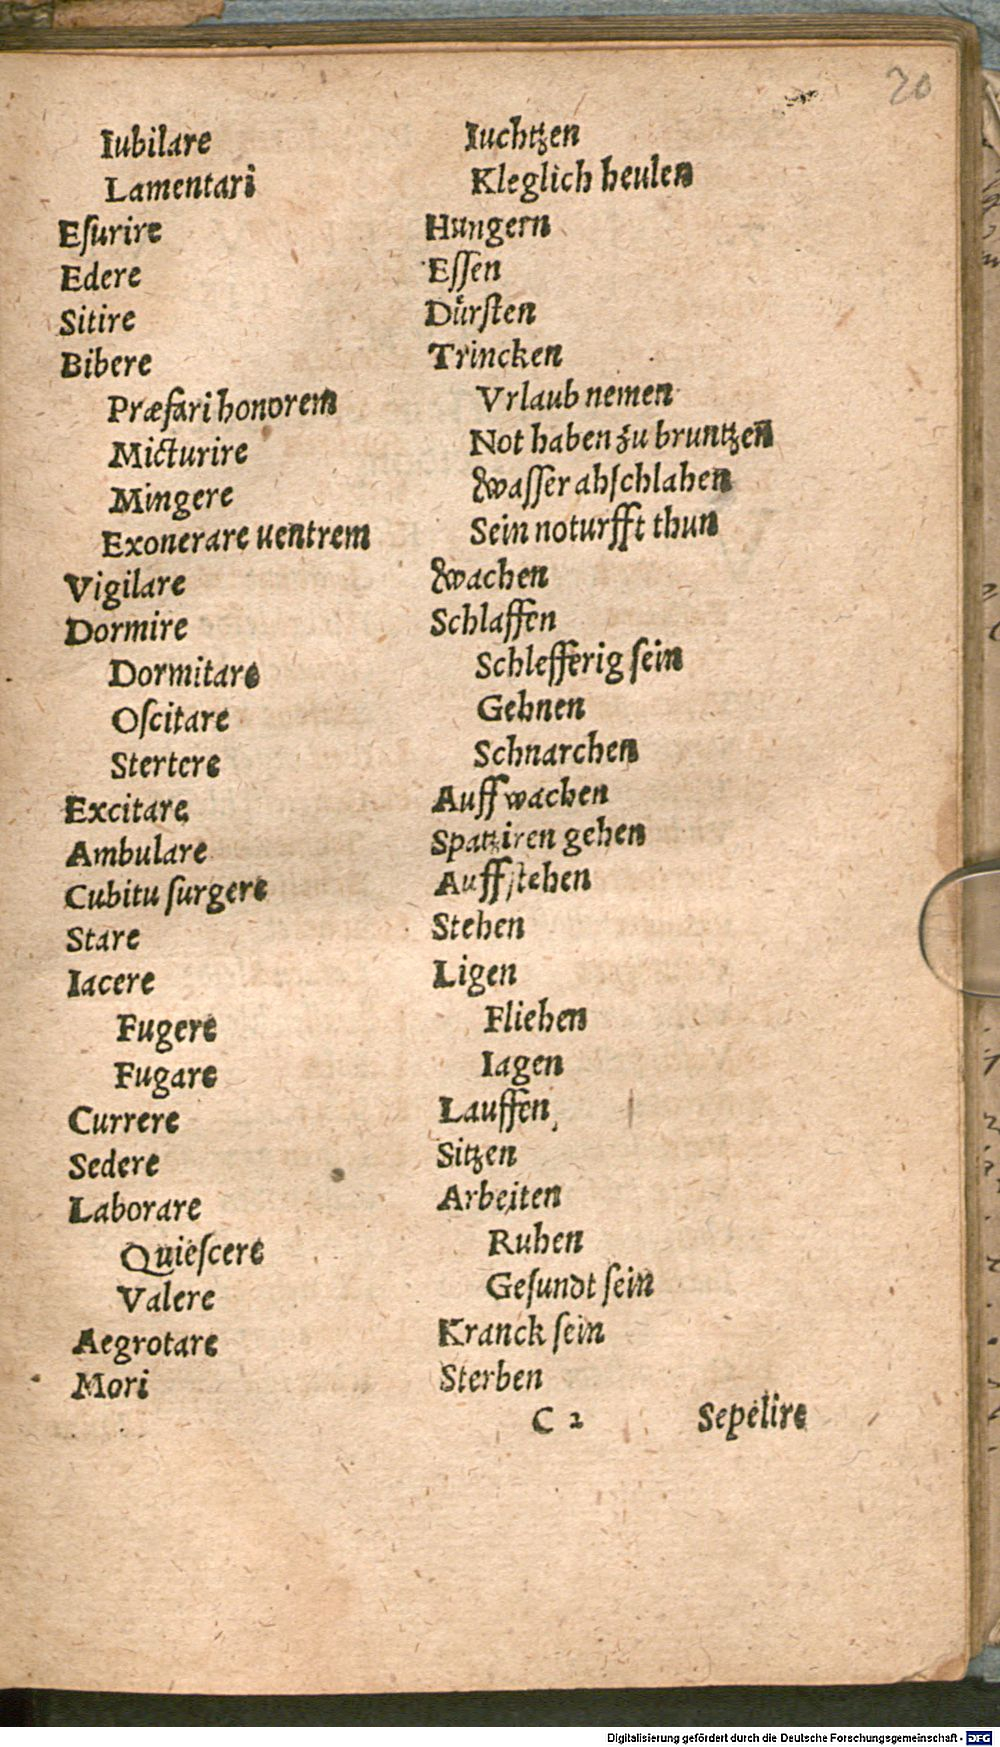 20
Iubilare Iuchtzen
Lamentari Kleglich heulen
Eſurire Hungern
Edere Eſſen
Sitire Dürſten
Bibere Trincken
Præfari honorem Vrlaub nemen
Micturire Not haben zu bruntzen
Mingere Waſſer abſchlahen
Exonerare uentrem Sein noturfft thun
Vigilare Wachen
Dormire Schlaffen
Dormitare Schlefferig ſein
Oſcitare Gehnen
Stertere Schnarchen
Excitare Auff wachen
Ambulare Spatziren gehen
Cubitu ſurgere Auffſtehen
Stare Stehen
Iacere Ligen
Fugere Fliehen
Fugare Iagen
Currere Lauffen
Sedere Sitzen
Laborare Arbeiten
Quieſcere Ruhen
Valere Geſundt ſein
Aegrotare Kranck ſein
Mori Sterben
C 2 Sepelire
Digitalisierung gefördert durch die Deutsche Forschungsgemeinschaft - DFG